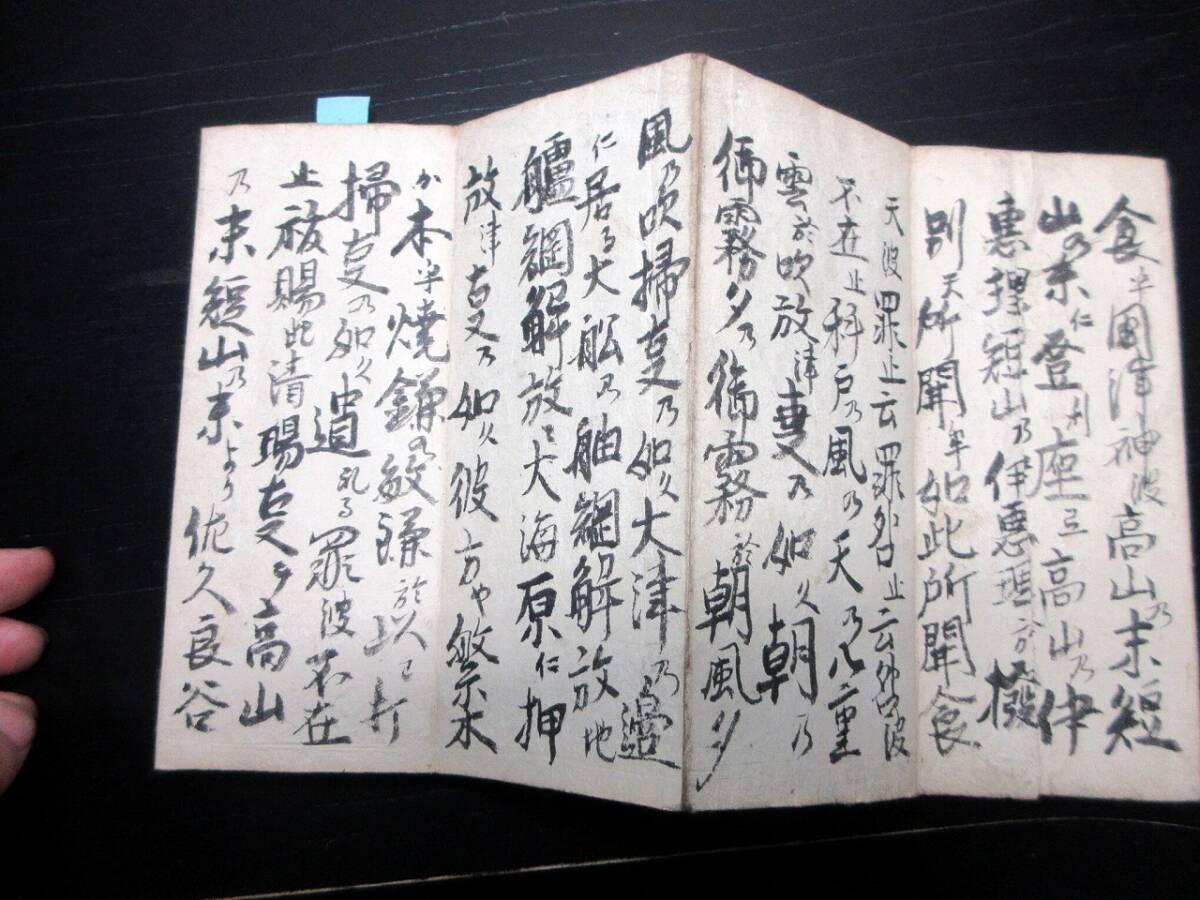 食牟國津神波高山乃末短
山乃末仁登利座三高山乃伊
惠理短山乃伊惠理於撥
別天所聞牟如此所聞食
天波罪止云罪咎止云咎波
不在止科戸乃風乃天乃八重
雲於吹放津事乃如久朝乃
御霧夕乃御霧於朝風夕
風乃吹掃事乃如久大津乃邊
仁居る大舩乃舳綱解放地
艫綱解放ミ大海原仁押
放津事乃如久彼方や繁木
か本牟燒鎌乃敏鎌於以て打
掃事乃如久遺れる罪波不在
止祓賜比清賜事ヲ高山
乃末短山乃末より佐久良谷